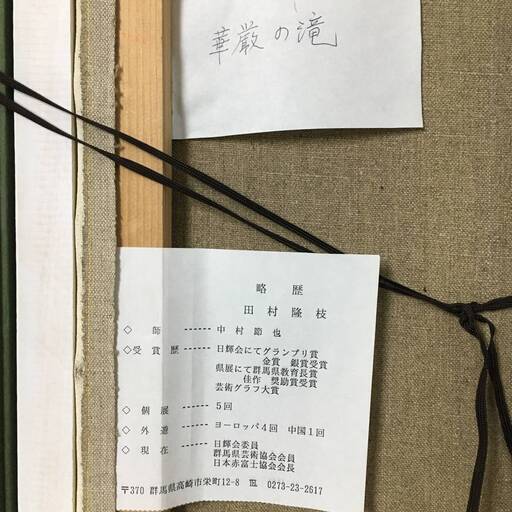 華厳の滝
略 歴
田 村 隆 枝
◇ 師 ------ 中 村 節 也
◇受 賞 歴------ 日輝会にてグランプリ賞
金賞 銀賞受賞
県展にて群馬県教育長賞
佳作 奨励賞受賞
芸術グラフ大賞
◇ 個 展 ------ 5回
◇ 外 遊 ------ ヨーロッパ4回 中国1回
◇ 現 在 ------ 日輝会委員
群馬県芸術協会会員
日本赤富士協会会長
〒370 群馬県高崎市栄町12-8 ℡ 0273-23-2617